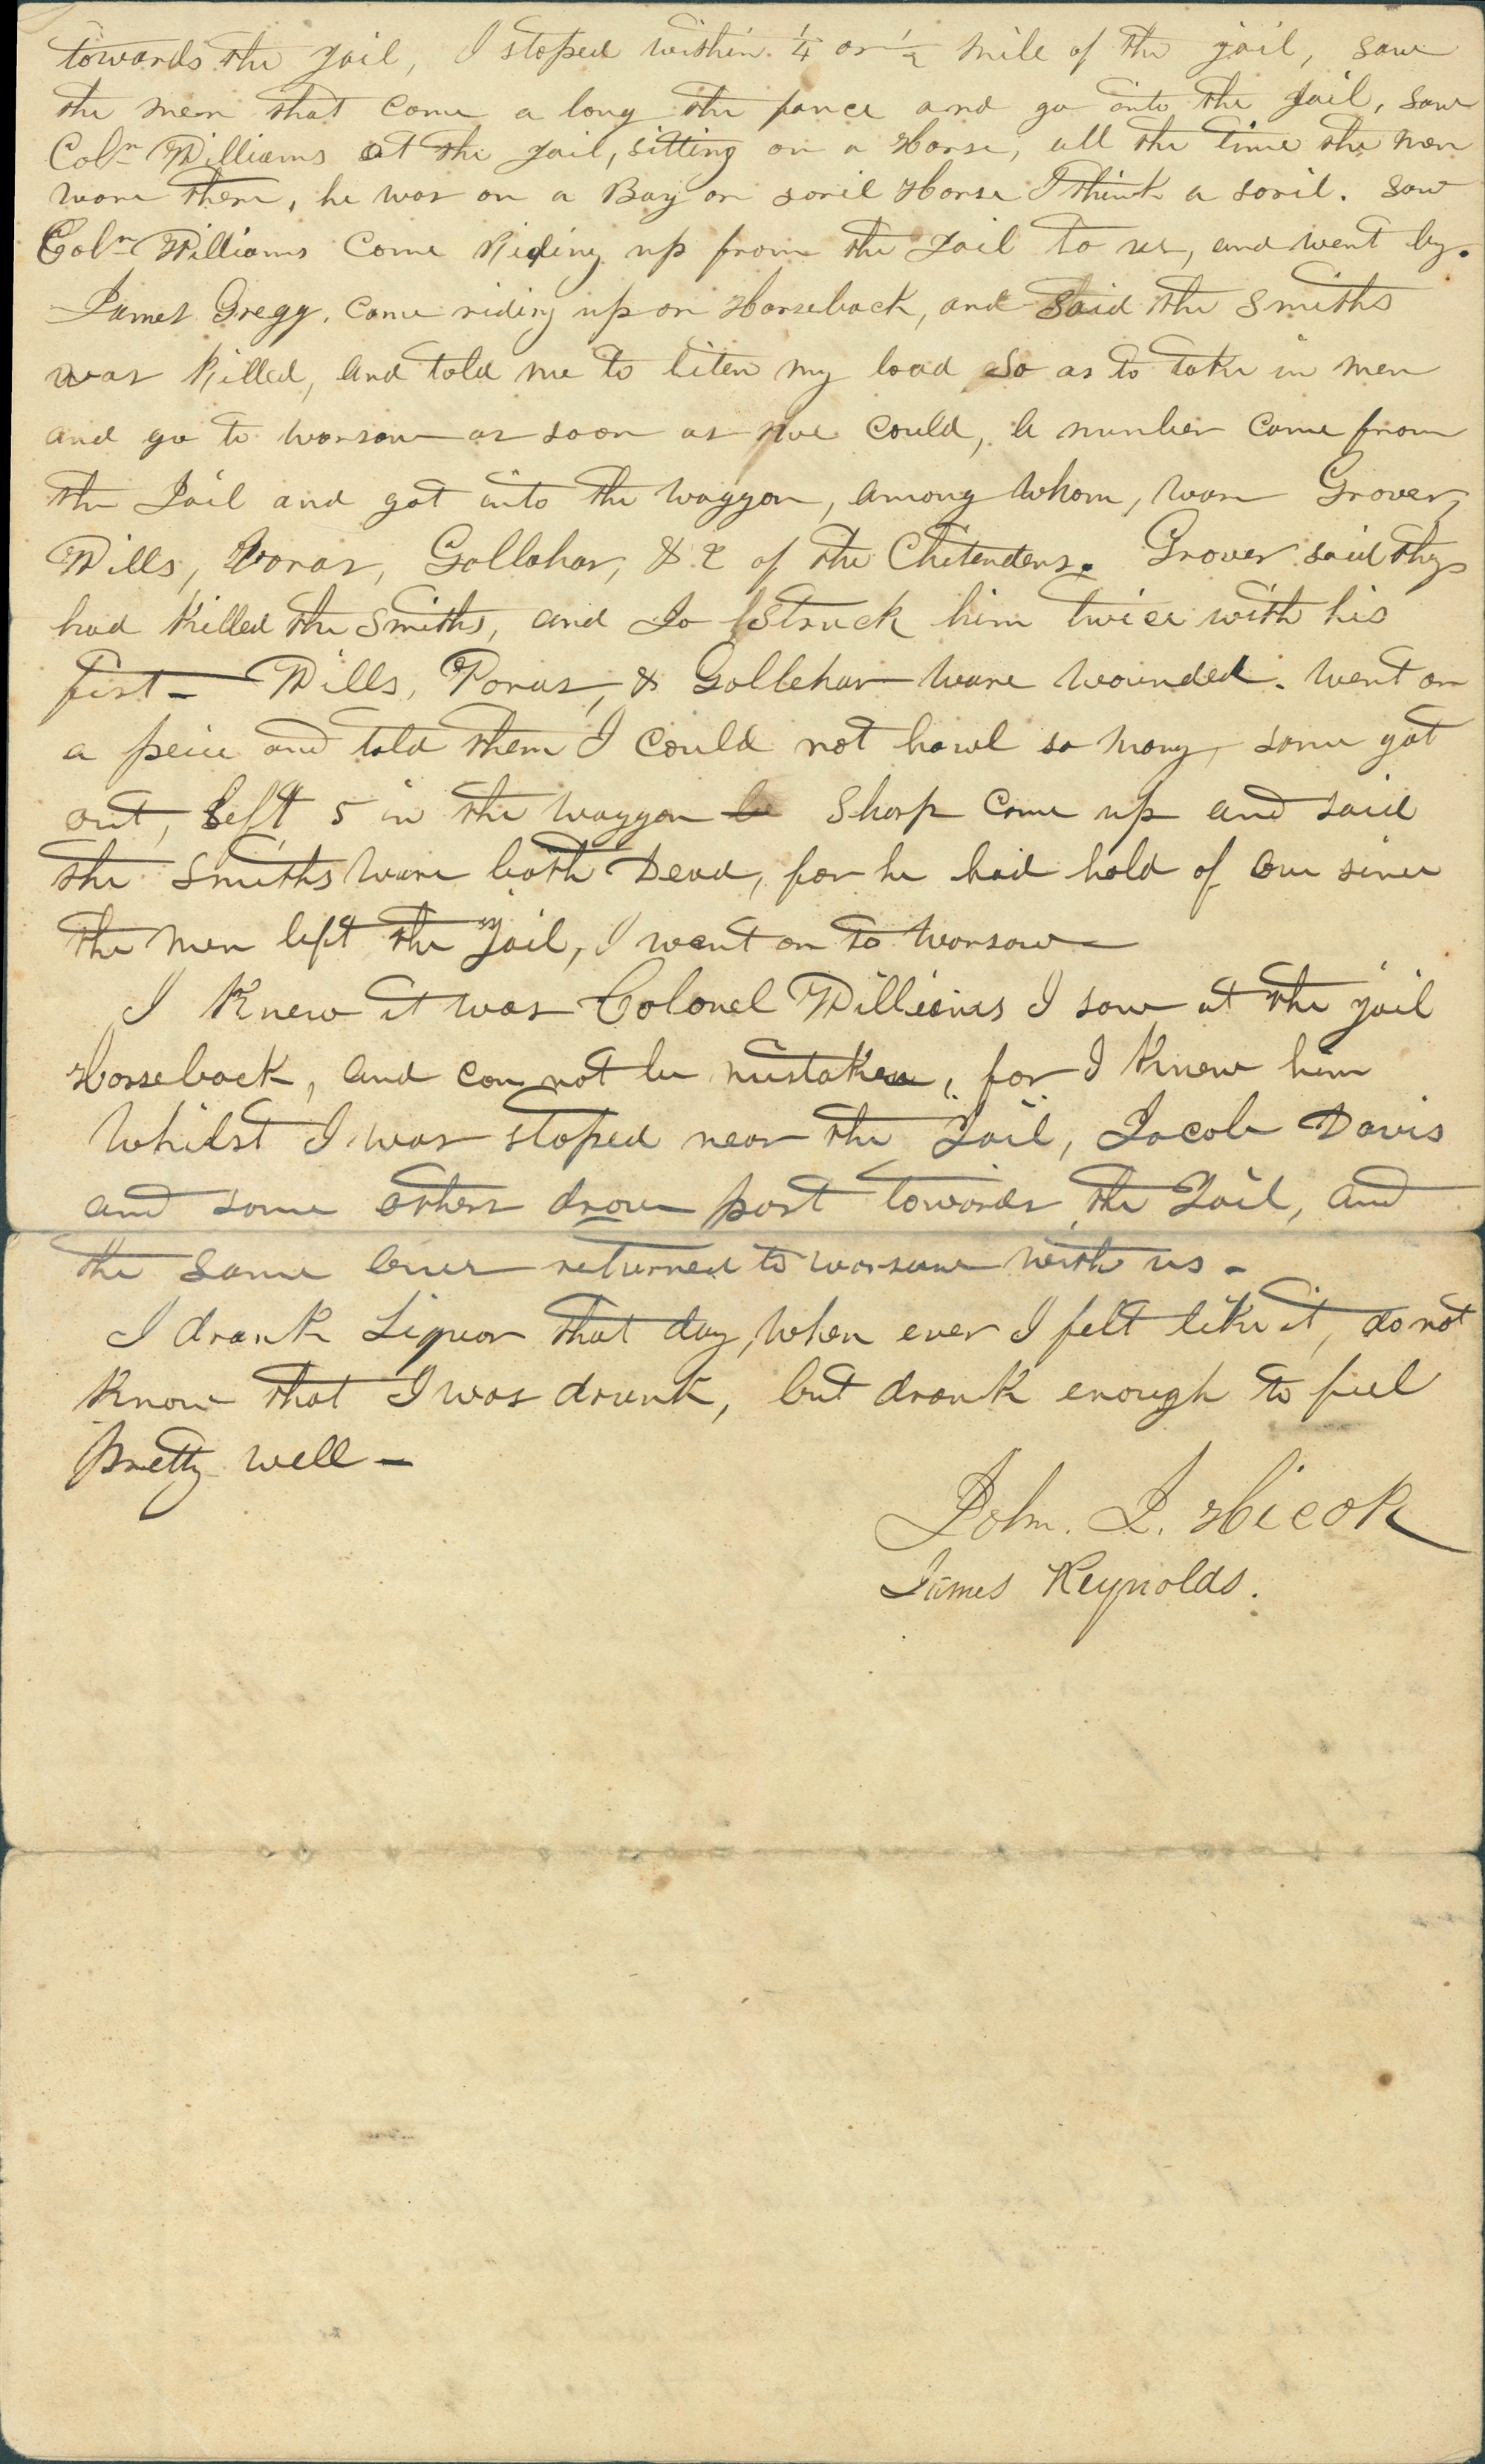 towards the Jail, I stoped within ¼ or ½ mile of the jail, saw
the men that come a long the fance and go into the Jail, saw
Coln Williams at the Jail, sitting on a Horse, all the time the men
ware there, he was on a Bay or soril Horse I think a soril. saw
Coln Williams Come Riding up from the Jail to us, and went by.
James Gregg. Came riding up on Horseback, and said the Smiths
was Killed, and told me to liten my load so as to take in men
and go to warsaw as soon as we could, a number came from
the Jail and got into the waggon, among whom, ware Grover,
Wills, Voras, Gallahar, & 2 of the Chitendens. Grover said they
had Killed the Smiths, and Jo Struck him twice with his
fist – Wills, Voras, & Gallehar ware wounded. went on
a peice and told them I could not hawl so many, some got
out, left 5 in the waggon Sharp come up and said
the Smiths ware both Dead, for he had hold of one since
the men left the Jail, I went on to warsaw
I Knew it was Colonel Williams I saw at the jail
Horseback, and can not be mistaken, for I Knew him
Whilst I was stoped near the Jail, Jacob Davis
and some others drove past towards the Jail, and
the same ones returned to warsaw with us –
I drank Liquor that day, when ever I felt like it, do not
know that I was drunk, but drank enough to feel
pretty well –
John. J. Hicok
James Reynolds.